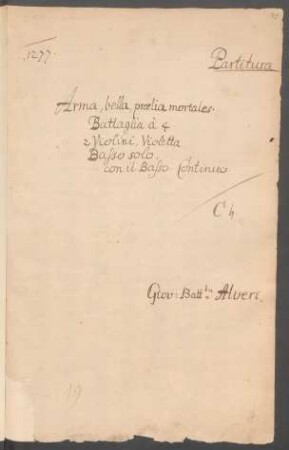 1277.
Partitura
Arma, bella, prœlia mortales.
Battaglia à 4
2 Violini, Violetta
Basso solo.
con il Basso Continuo
C h
Giov: Batt:ta Alveri.
19